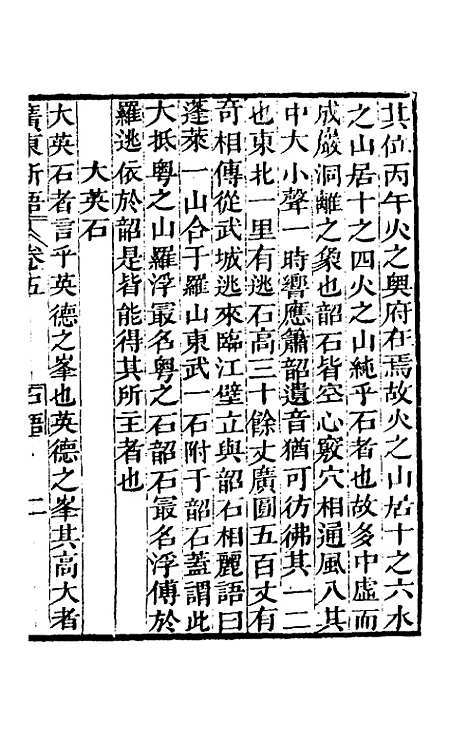 其位丙午火之奧府在焉故火之山居十之六水
之山居十之四火之山純乎石者也故多中虛而
成巖洞離之象也韶石皆空心竅穴相通風入其
中大小聲一時響應簫韶遺音猶可彷彿其一二
也東北一里有逃石高三十餘丈廣圓五百丈有
奇相傳從武城逃來臨江壁立與韶石相麗語曰
蓬萊一山合于羅山東武一石附于韶石蓋謂此
大抵粤之山羅浮最名粤之石韶石最名浮傅於
羅逃依於韶是皆能得其所主者也
大英石
大英石者言乎英德之峯也英德之峯其高大者
廣東新語 卷五 石語 二